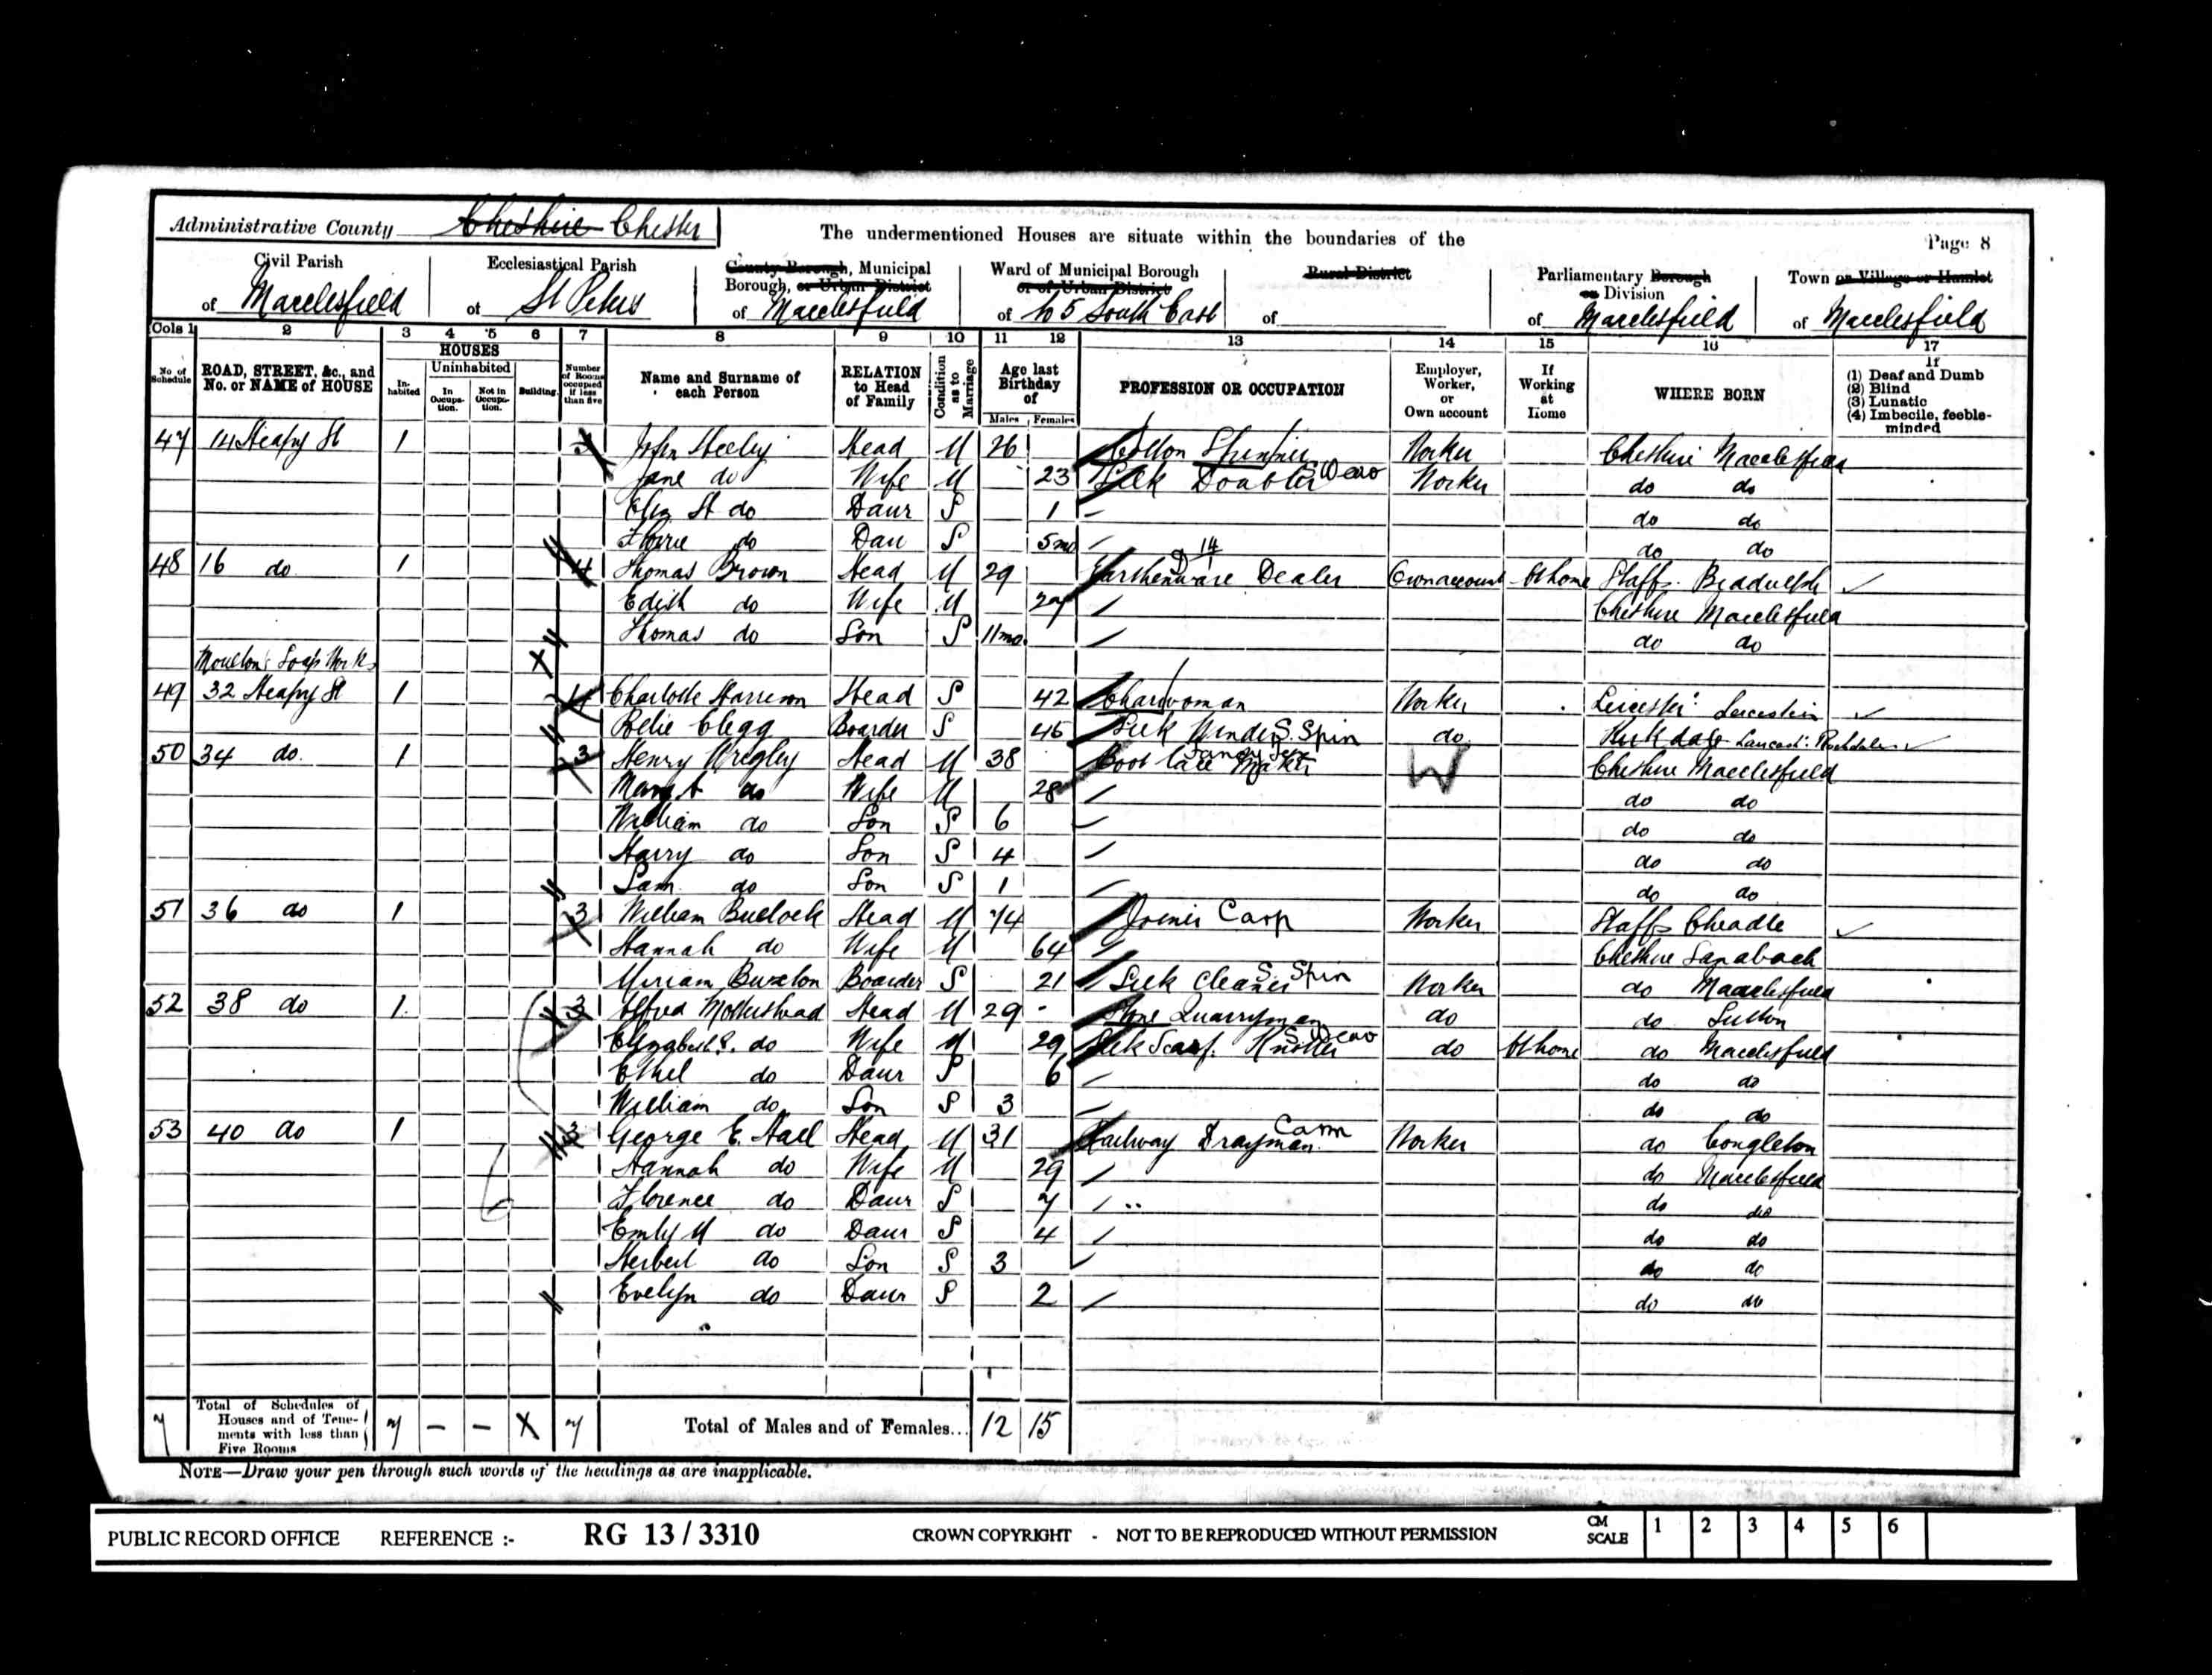 Administrative County Cheshire Chester
The undermentioned Houses are situate within the boundaries of the
Page 8
Civil Parish of Macclesfield
Ecclesiastical Parish of St Peters
County Borough, Municipal Borough, or Urban District of Macclesfield
Ward of Municipal Borough or of Urban District of No 5 South East
Rural District of
Parliamentary Borough or Division of Macclesfield
Town or Village or Hamlet of Macclesfield
Cols 1 2 3 4 5 6 7 8 9 10 11 12 13 14 15 16 17
No. of Schedule
ROAD, STREET, &c., and No. or NAME of HOUSE
HOUSES
Inhabited
Uninhabited
In Occupation.
Not in Occupation.
Building.
Number of Rooms occupied if less than five
Name and Surname of each Person
RELATION to Head of Family
Condition as to Marriage
Age last Birthday of
Males Females
PROFESSION OR OCCUPATION
Employer, Worker, or Own account
If Working at Home
WHERE BORN
If (1) Deaf and Dumb (2) Blind (3) Lunatic (4) Imbecile, feeble-minded
47 14 Heapy St 1 3 John Heeley Head M 26 Cotton Spinner Worker Cheshire Macclesfield
Jane do Wife M 23 Silk Doubler S Weav Worker do do
Eliz H do Daur S 1 do do
Florrie do Dau S 5 mo do do
48 16 do 1 4 Thomas Brown Head M 29 Earthenware Dealer D 14 Own account At home Staffs. Biddulph
Edith do Wife M 27 Cheshire Macclesfield
Thomas do Son S 11 mo. do do
Moulton's Soap Works X
49 32 Heapy St 1 4 Charlotte Harrison Head S 42 Charwoman Worker Leicester
Clegg Boarder S 46 Silk Winder S. Spin do Lancash: Rochdale
50 34 do 1 3 Henry Wrigley Head M 38 Boot lace Maker W Cheshire Macclesfield
Mary A do Wife M 28 do do
William do Son S 6 do do
Harry do Son S 4 do do
Sam do Son S 1 do do
51 36 do 1 3 William Bullock Head M 74 Joiner Carp Worker Staffs Cheadle
Hannah do Wife M 64 Cheshire Sandbach
Miriam Buxton Boarder S 21 Silk Cleaner S. Spin Worker do Macclesfield
52 38 do 1 3 Alfred Mottershead Head M 29 Stone Quarryman do do Sutton
Elizabeth do Wife M 29 Silk Scarf Knotter S Weav do At home do Macclesfield
Ethel do Daur S 6 do do
William do Son S 3 do do
53 40 do 1 3 George E. Hall Head M 31 Railway Drayman. Carm Worker do Congleton
Hannah do Wife M 29 do Macclesfield
Florence do Daur S 7 do do
Emily M do Daur S 4 do do
Herbert do Son S 3 do do
Evelyn do Daur S 2 do do
7 Total of Schedules of Houses and of Tenements with less than Five Rooms 7 – – X 7 Total of Males and of Females... 12 15
NOTE—Draw your pen through such words of the headings as are inapplicable.
PUBLIC RECORD OFFICE REFERENCE :- RG 13 / 3310 CROWN COPYRIGHT - NOT TO BE REPRODUCED WITHOUT PERMISSION CM SCALE 1 2 3 4 5 6